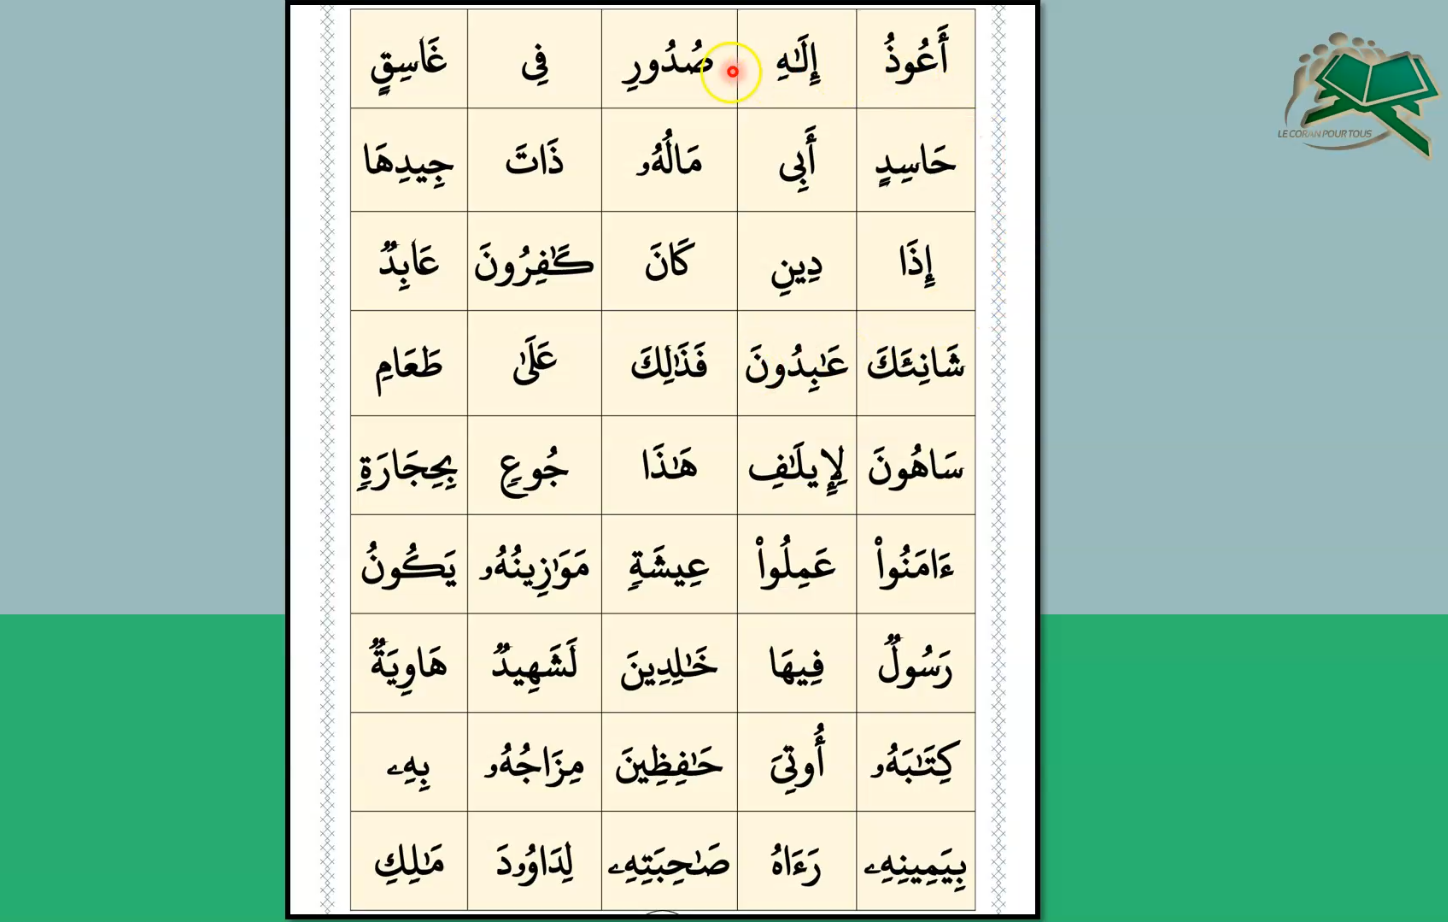 أَعُوذُ إِلَٰهِ صُدُورِ فِى غَاسِقٍ
حَاسِدٍ أَبِى مَالُهُۥ ذَاتَ جِيدِهَا
إِذَا دِينِ كَانَ كَٰفِرُونَ عَابِدٌ
شَانِئَكَ عَٰبِدُونَ فَذَٰلِكَ عَلَىٰ طَعَامِ
سَاهُونَ لِإِيلَٰفِ هَٰذَا جُوعٍ بِحِجَارَةٍ
ءَامَنُوا۟ عَمِلُوا۟ عِيشَةٍ مَوَٰزِينُهُۥ يَكُونُ
رَسُولٌ فِيهَا خَٰلِدِينَ لَشَهِيدٌ هَاوِيَةٌ
كِتَٰبَهُۥ أُوتِىَ حَٰفِظِينَ مِزَاجُهُۥ بِهِۦ
بِيَمِينِهِۦ رَءَاهُ صَٰحِبَتِهِۦ لِدَاوُۥدَ مَٰلِكِ
LE CORAN POUR TOUS